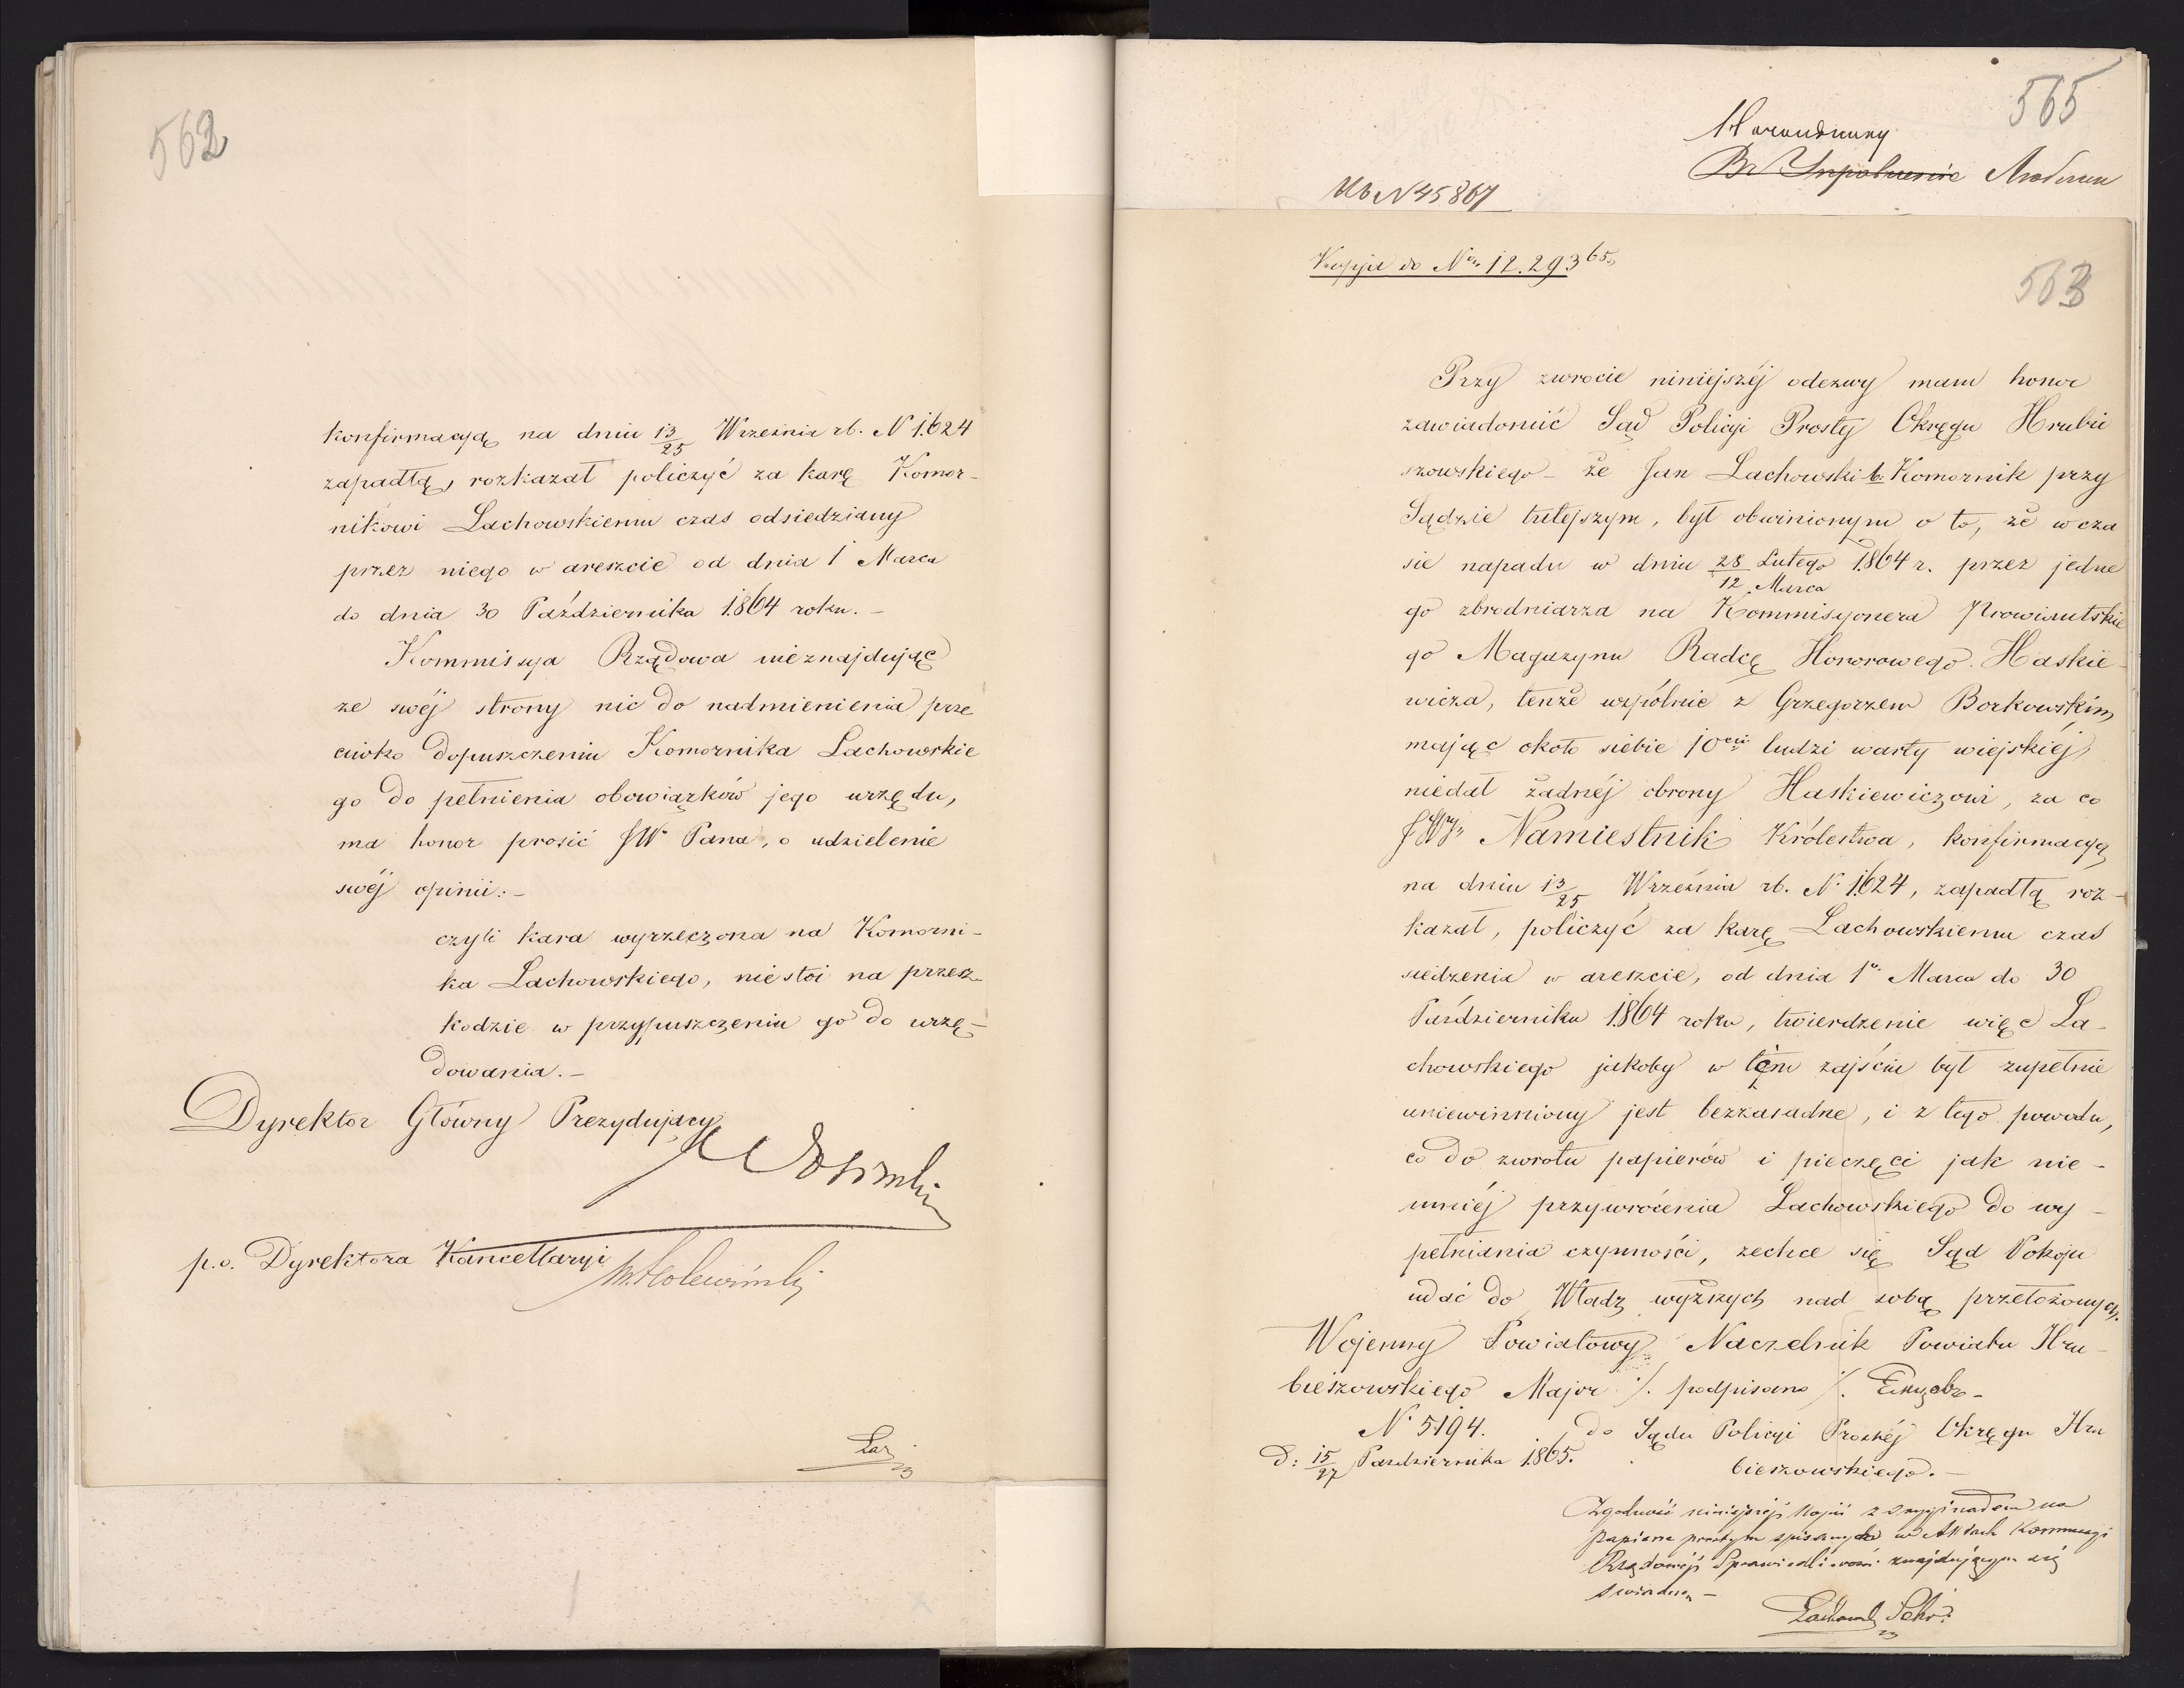 562
konfirmacyą na dniu 13/25 Września rb. N 1.624
zapadłą, rozkazał policzyć za karę Komor-
nikowi Lachowskiemu czas odsiedziany
przez niego w areszcie od dnia 1 Marca
do dnia 30 Października 1864 roku. –
Kommissya Rządowa nieznajdując
ze swéj strony nic do nadmienienia prze
ciwko dopuszczeniu Komornika Lachowskie
go do pełnienia obowiązków jego urzędu,
ma honor prosić JW Pana, o udzielenie
swéj opinii: –
czyli kara wyrzeczona na Komorni-
ka Lachowskiego, niestoi na przesz-
kodzie w przypuszczeniu go do urzę-
dowania. –
Dyrektor Główny Prezydujący
p.o. Dyrektora Kancellaryi
565
N 45867
Kopija do Nru 12.293 65
563
Przy zwrocie niniejszéj odezwy mam honor
zawiadomić Sąd Policyi Prostéj Okręgu Hrubie
szowskiego – że Jan Lachowski b. Komornik przy
Sądzie tutejszym, był obwinionym o to, że w cza
sie napadu w dniu 28 Lutego/12 Marca 1864 r. przez jedne
go zbrodniarza na Kommisyonera Prowiantskie
go Magazynu Radcę Honorowego Haskie-
wicza, tenże wspólnie z Grzegorzem Borkowskim
mając około siebie 10ciu ludzi warty wiejskiéj
niedał żadnéj obrony Haskiewiczowi, za co
JW Namiestnik Królestwa, konfirmacyą
na dniu 13/25 Września rb. N. 1624, zapadłą roz-
kazał, policzyć za karę Lachowskiemu czas
siedzenia w areszcie, od dnia 1go Marca do 30
Października 1864 roku, twierdzenie więc La-
chowskiego jakoby w tém zajściu był zupełnie
uniewinniony jest bezzasadne, i z tego powodu,
co do zwrotu papierów i pieczęci jak nie-
mniéj przywrócenia Lachowskiego do wy-
pełniania czynności, zechce się Sąd Pokoju
udać do Władz wyższych nad sobą przełożonych.
Wojenny Powiatowy Naczelnik Powiatu Hru-
bieszowskiego Major /. podpisano /.
N 5194. do Sądu Policyi Prostéj Okręgu Hru
D: 15/27 Października 1865. bieszowskiego. –
Zgodność niniejszéj kopii z oryginałem na
papierze prostym spisanym w Aktach Kommissyi
Rządowéj Sprawiedliwości znajdującym się
świadczę –